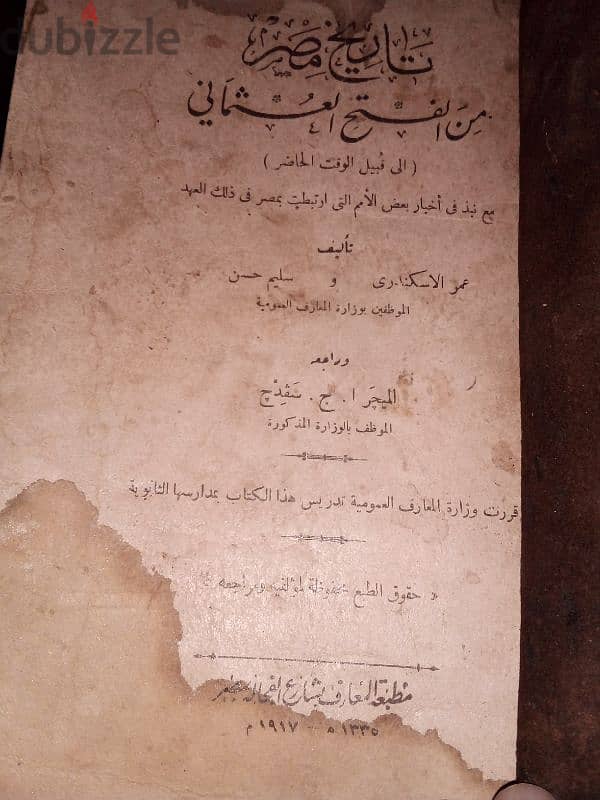 dubizzle
تاريخ مصر
من الفتح العثماني
( الى قبيل الوقت الحاضر )
مع نبذ فى أخبار بعض الأمم التى ارتبطت بمصر فى ذلك العهد
تأليف
عمر الاسكندرى و سليم حسن
الموظفين بوزارة المعارف العمومية
وراجعه
الميجر ا. ج. سفدج
الموظف بالوزارة المذكورة
قررت وزارة المعارف العمومية تدريس هذا الكتاب بمدارسها الثانوية
« حقوق الطبع محفوظة لمؤلفيه ومراجعه »
مطبعة المعارف بشارع الفجالة بمصر
١٣٣٥ ه - ١٩١٧ م